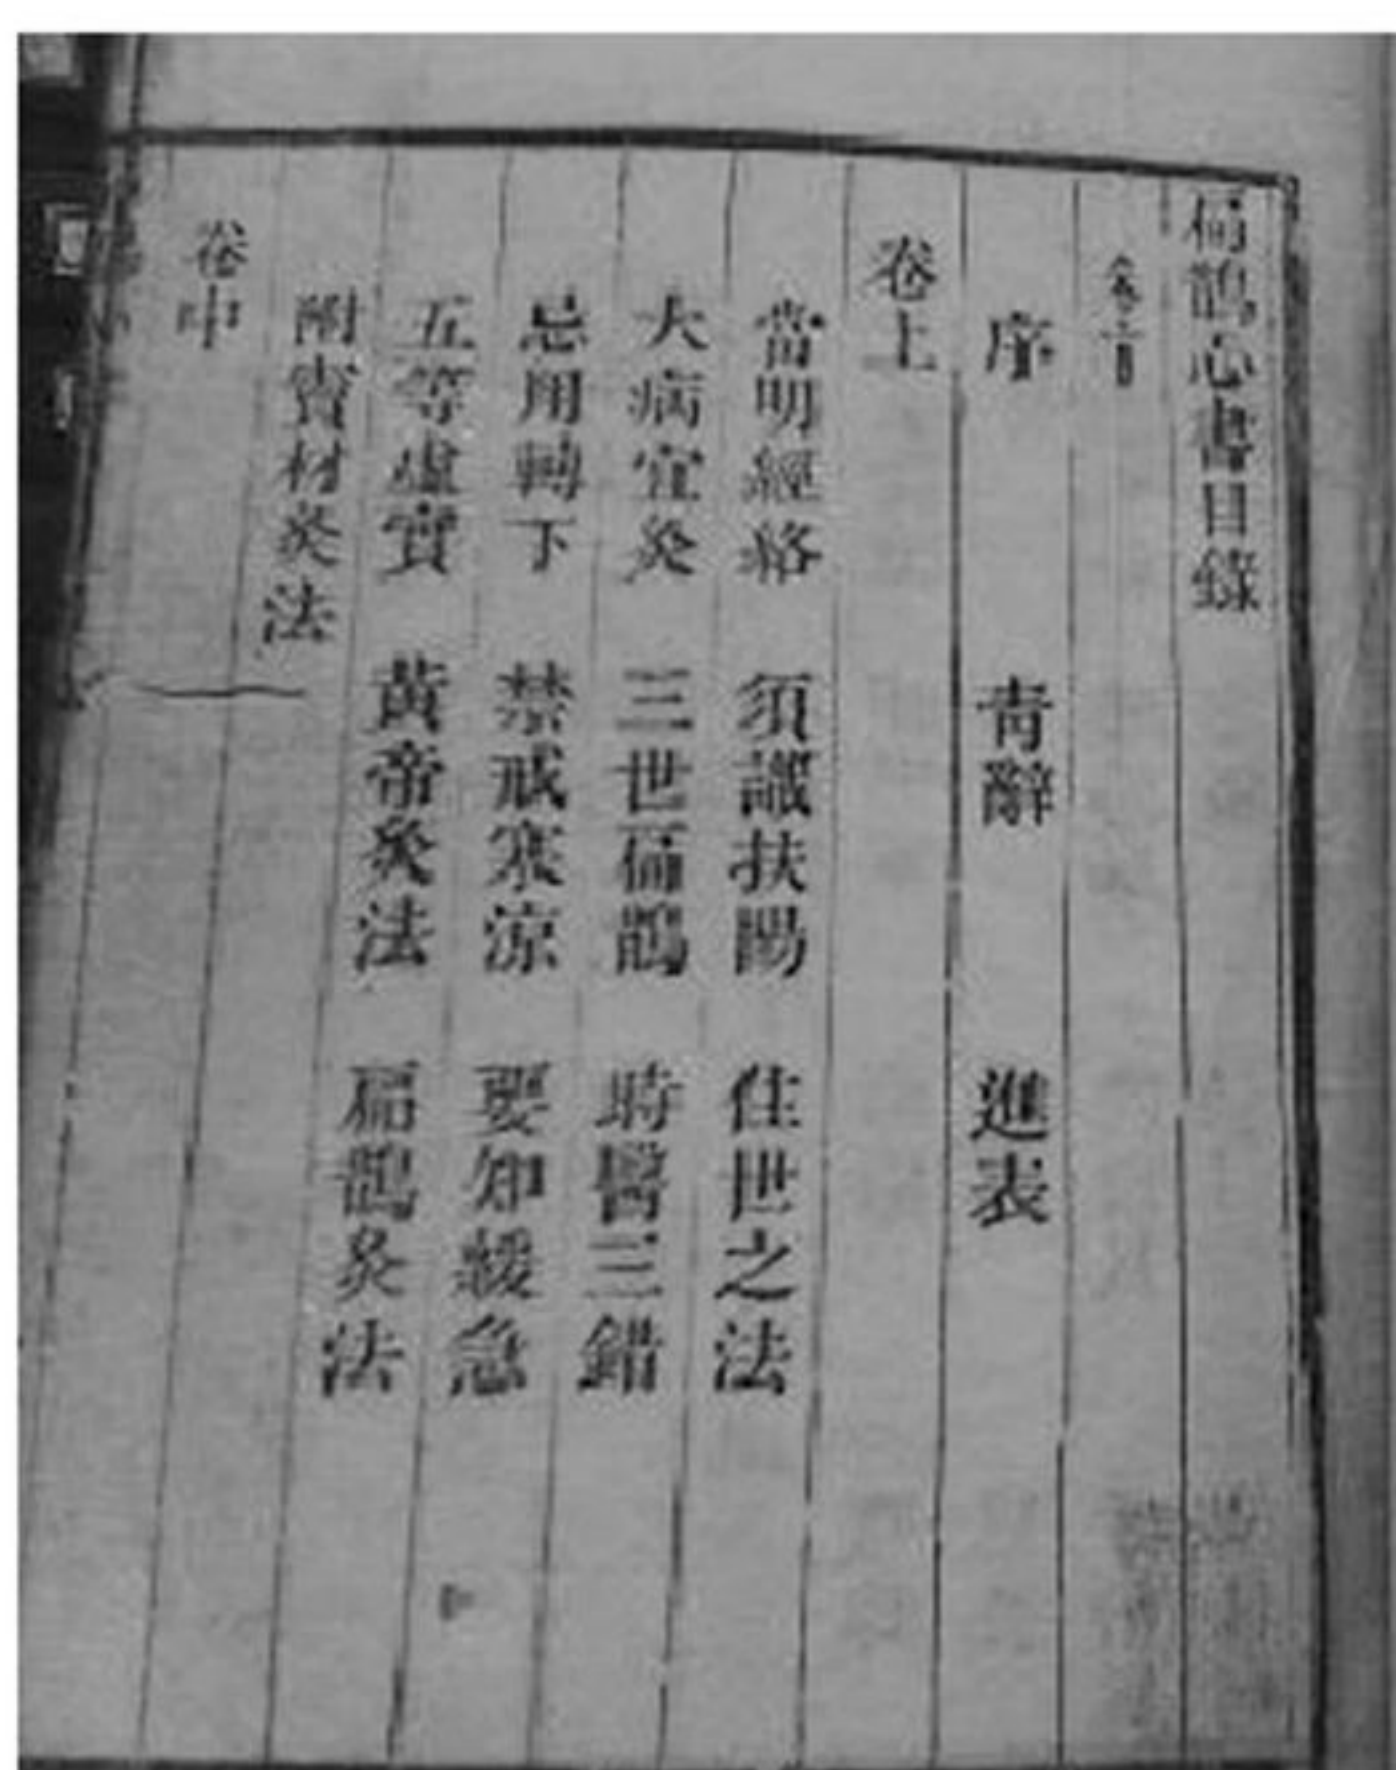 扁鵲心書目錄
卷首
序　靑辭　進表
卷上
當明經絡　須識扶陽　住世之法
大病宜灸　三世扁鵲　時醫三錯
忌用轉下　禁戒寒涼　要知緩急
五等虛實　黃帝灸法　扁鵲灸法
附竇材灸法
卷中